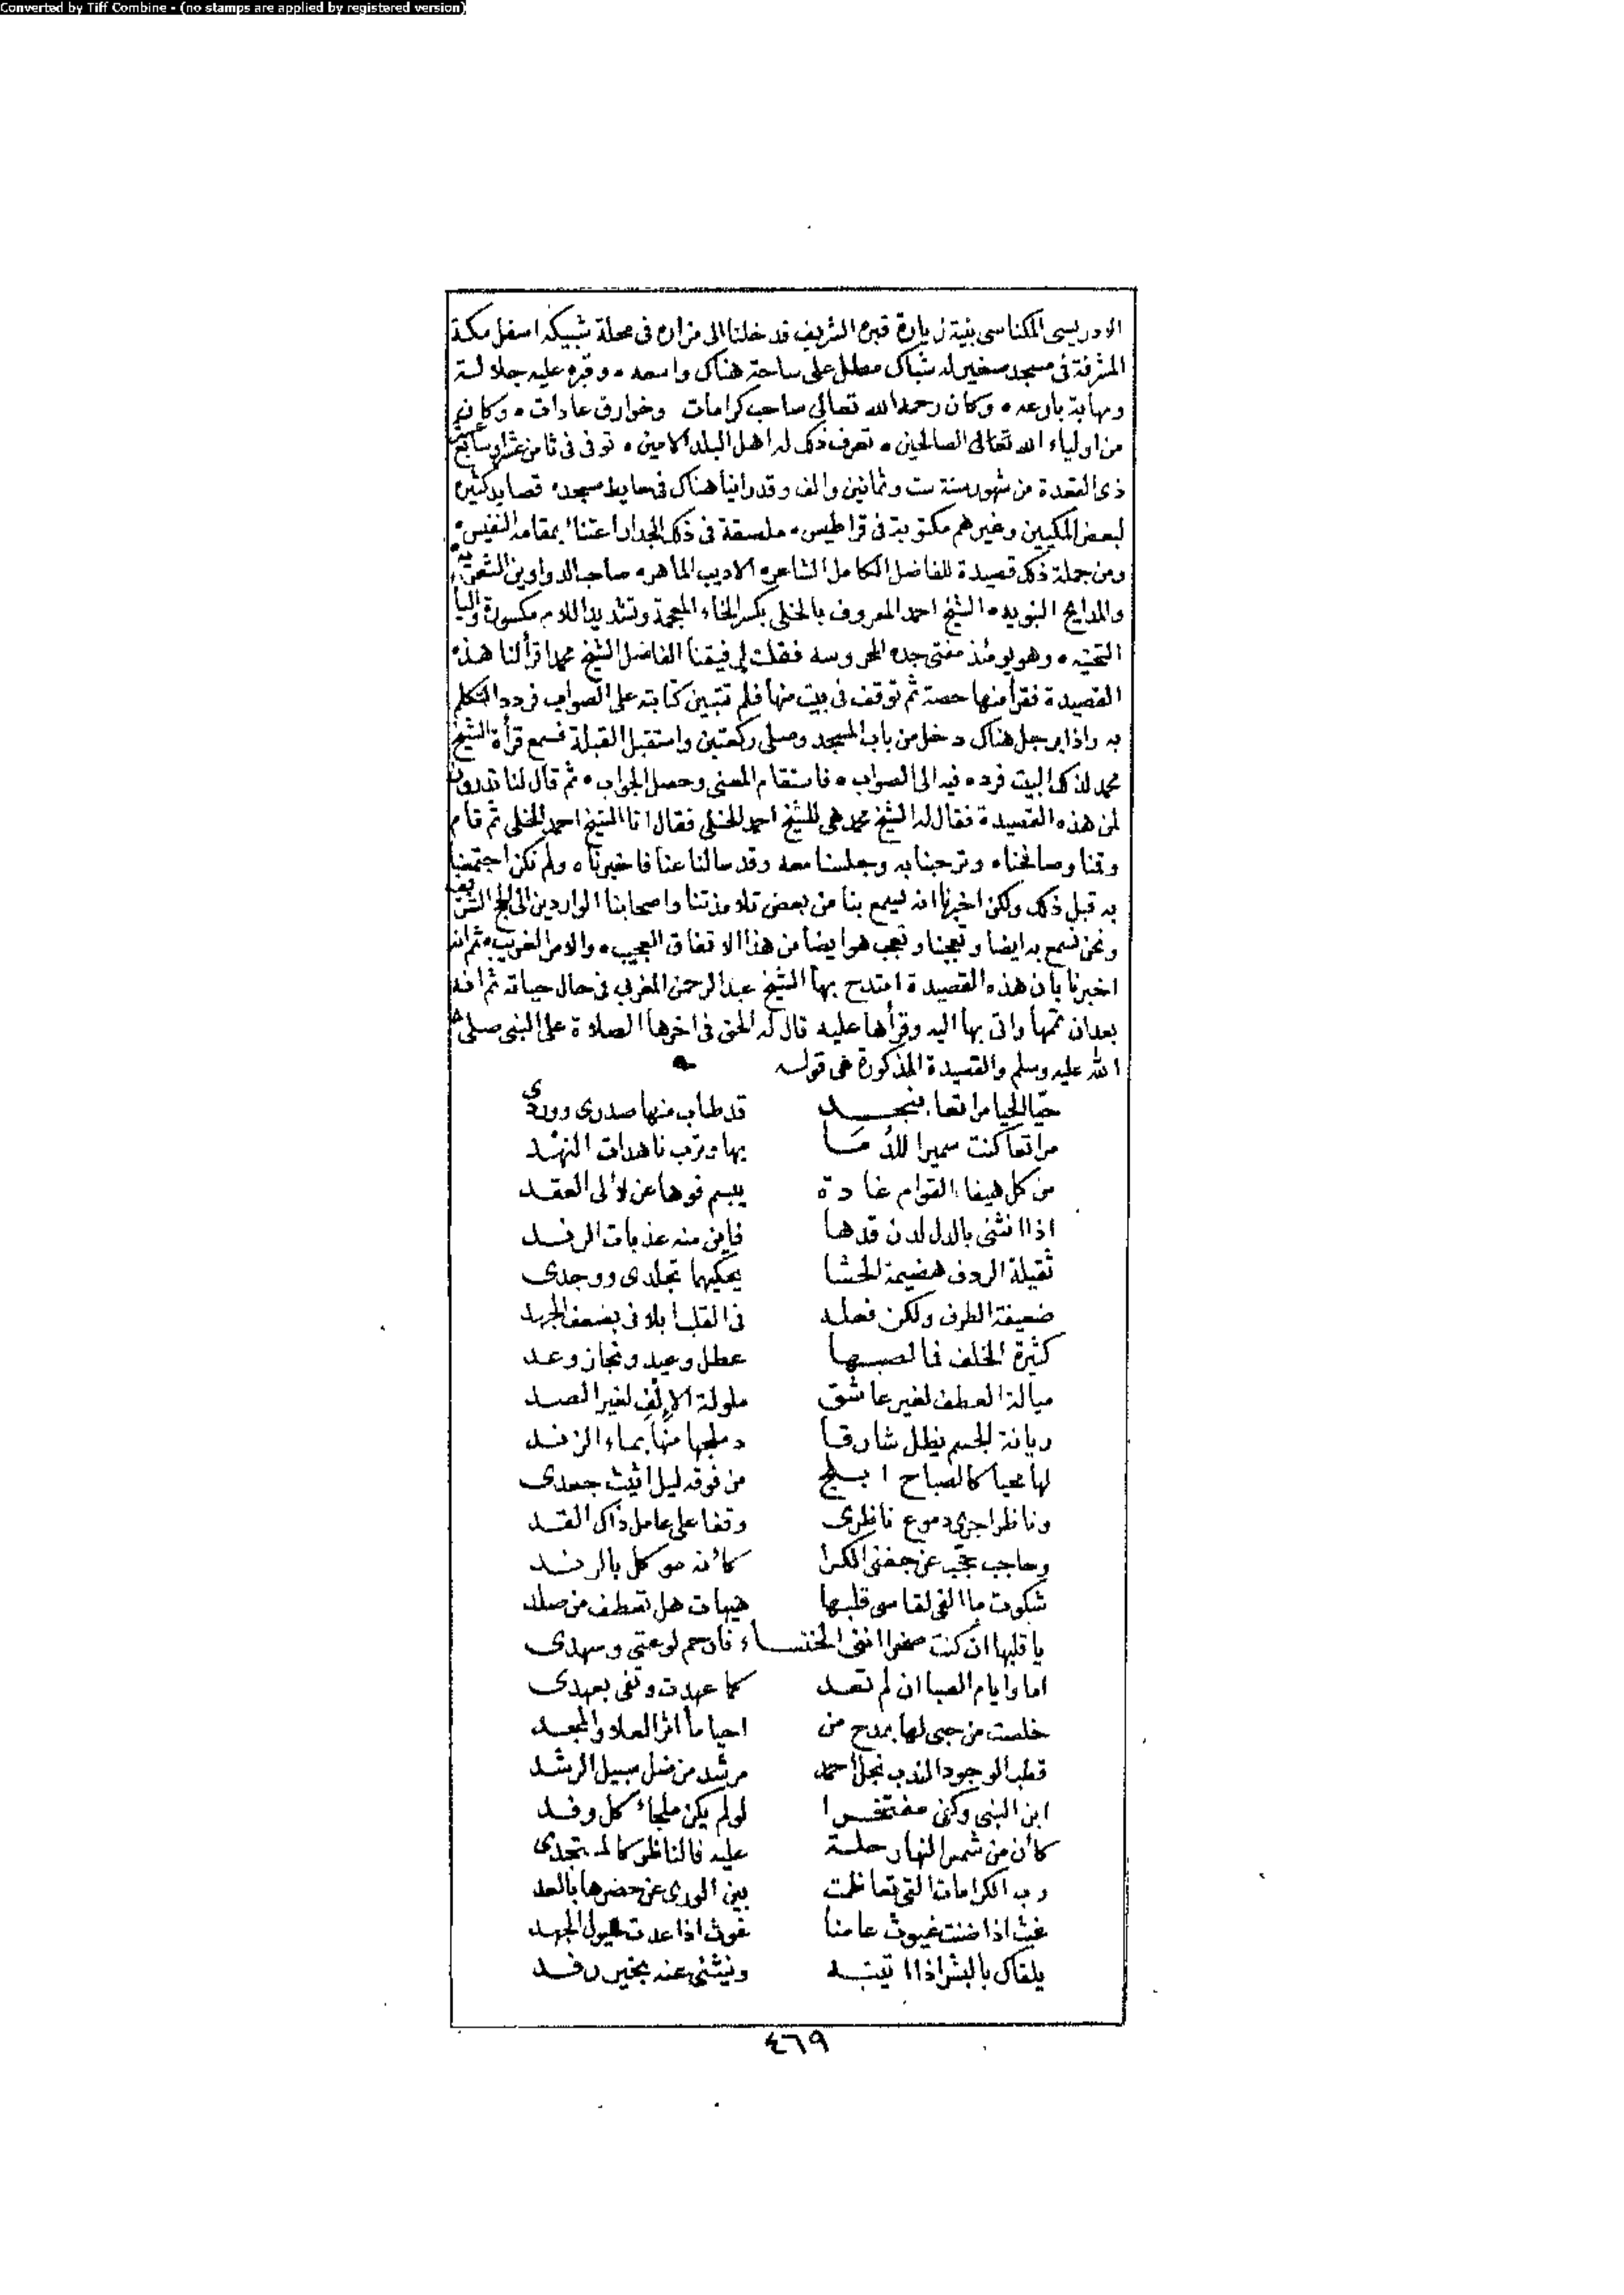 Converted by Tiff Combine - (no stamps are applied by registered version)
الادريسى المكناسى بنية زيارة قبره الشريف فدخلنا الى مزاره فى محلة شبيكه اسفل مكة
المشرفة فى مسجد صغير له شباك مطل على ساحة هناك واسعه ٠ وقبره عليه جلالة
ومهابة بارعه ٠ وكان رحمه الله تعالى صاحب كرامات وخوارق عادات ٠ وكان
من اولياء الله تعالى الصالحين ٠ تعرف ذلك له اهل البلد الامين ٠ توفى فى ثامن عشر
ذى القعدة من شهور سنة ست وثمانين والف وقد راينا هناك فى حايط مسجده قصايد كثيره
لبعض المكيين وغيرهم مكتوبة فى قراطيس ٠ ملصقة فى ذلك الجدار اعتناء بمقامه النفيس ٠
ومن جملة ذلك قصيدة للفاضل الكامل الشاعر ٠ الاديب الماهر ٠ صاحب الدواوين الشعريه
والمدايح النبويه ٠ الشيخ احمد المعروف بالخلى بكسر الخاء المعجمة وتشديد اللام مكسورة واليا
التحتيه ٠ وهو يومئذ مفتى جده المحروسه فقلت لرفيقنا الفاضل الشيخ محمد اقرأ لنا هذه
القصيدة فقرأ منها حصة ثم توقف فى بيت منها فلم تتبين كتابته على الصواب فردد التكلم
به واذا برجل هناك دخل من باب المسجد وصلى ركعتين واستقبل القبلة فسمع قرأة الشيخ
محمد لذلك البيت فرده فيه الى الصواب ٠ فاستقام المعنى وحصل الجواب ٠ ثم قال لنا تدرون
لمن هذه القصيدة فقال له الشيخ محمد هى للشيخ احمد الخلى فقال انا الشيخ احمد الخلى ثم قام
وقمنا وصافحناه وترحبنا به وجلسنا معه وقد سالنا عنا فاخبرناه ولم نكن اجتمعنا
به قبل ذلك ولكن اخبرنا انه ليسمع بنا من بعض تلامذتنا واصحابنا الواردين الى الحج الشريف
ونحن نسمع به ايضا وتعجبنا وتعجب هو ايضا من هذا الاتفاق العجيب ٠ والامر الغريب ٠ ثم انه
اخبرنا بان هذه القصيدة امتدح بها الشيخ عبد الرحمن المغربى فى حال حياته ثم انه
بعد ان تممها واتى بها اليه وقرأها عليه قال له الحق فى اخرها الصلاة على النبى صلى
الله عليه وسلم والقصيدة المذكورة هى قوله
حيّا الحيا مراتعا بنجد قد طاب منها صدرى ووردى
مراتعا كنت سميرا للدُمَا بها وترب ناهدات النهد
من كل هيفاء القوام غادة يبسم فوها عن لالى العقد
اذا انثنى بالدل لدن قدها فاين منه عذبات الرند
ثقيلة الردف هضيمة الحشا يحكيهما تجلدى ووجدى
ضعيفة الطرف ولكن فعله فى القلب ابلانى بضعف الجهد
كثيرة الخلف فما لصبها عطل وعيد ونجاز وعد
ميالة العطف لغير عاشق ملولة الالف لغير الصد
ريانة الجسم يظل شارقا دملجها منها بماء الزند
لها محيا كالصباح ابلج من فوقه ليل اثيث جعدى
وناظر اجرى دموع ناظرى وقفا على عامل ذاك القد
وحاجب حجب عن جفنى الكرا كانه موكل بالرند
شكوت ما القى لقاسى قلبها هيهات هل تعطف من صلد
يا قلبها ان كنت صخرا انثى الخنساء فارحم لوعتى وسهدى
اما وايام الصبا ان لم تعد كما عهدت وتفى بعهدى
خلصت من حبى لها بمدح من احيا مأاثر العلا والمجد
قطب الوجود الندب نجل احمد مرشد من ضل سبيل الرشد
ابن النبى وكفى مفتخرا لو لم يكن ملجاء كل وفد
كأن من شمس النهار حلة عليه فالناظر كالمستجدى
رب الكرامات التى تعاظمت بين الورى عن حصرها بالعد
غيث اذا ضنت غيوث عامنا غوث اذا عدت خيول الجهد
يلقاك بالبشر اذا اتيته وتنثنى عنه بخير رفد
٤٦٩